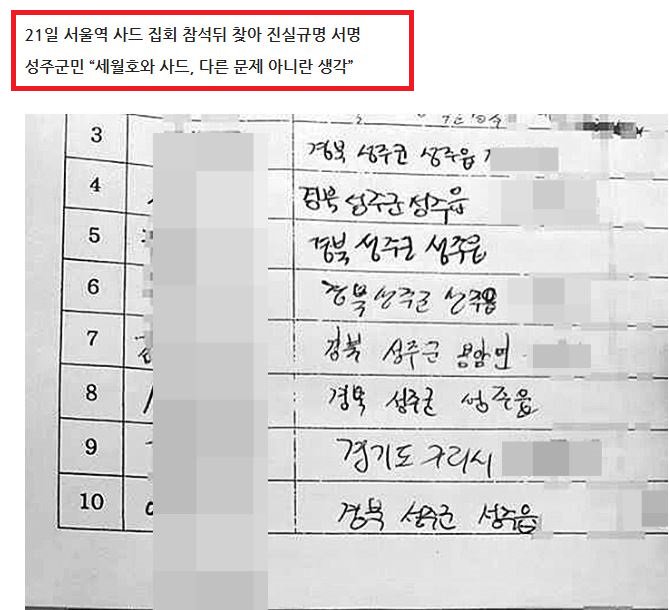 21일 서울역 사드 집회 참석뒤 찾아 진실규명 서명
성주군민 “세월호와 사드, 다른 문제 아니란 생각”
3 경북 성주군 성주읍
4 경북 성주군 성주읍
5 경북 성주군 성주읍
6 경북 성주군 성주읍
7 경북 성주군 용암면
8 경북 성주군 성주읍
9 경기도 구리시
10 경북 성주군 성주읍